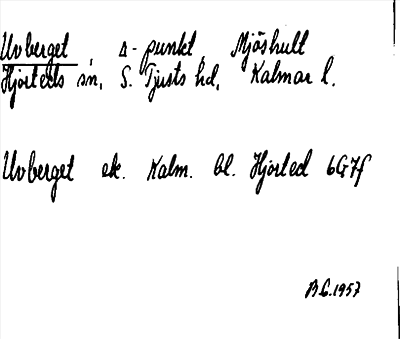 Uvberget, Δ-punkt, Mjöshult
Hjorteds sn, S. Tjusts hd, Kalmar l.
Uvberget ek. Kalm. bl. Hjorted 6G7f
B.G. 1957